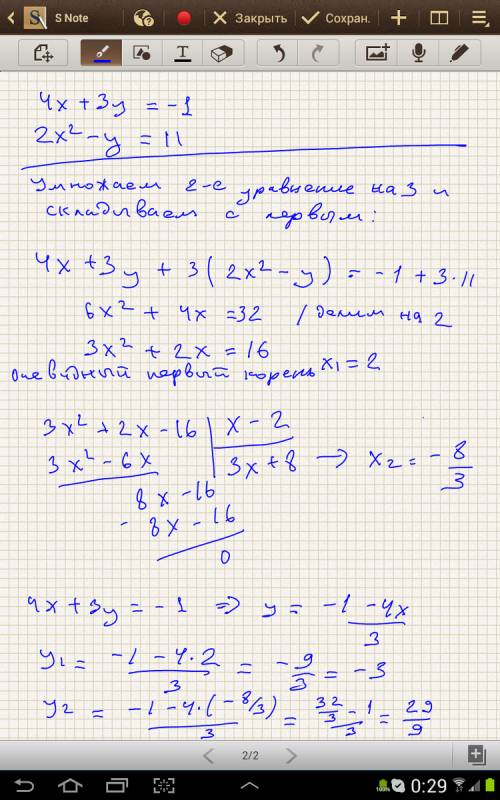 S Note
Закрыть
Сохран.
4x + 3y = -1
2x² - y = 11
Умножаем 2-е уравнение на 3 и
складываем с первым:
4x + 3y + 3(2x² - y) = -1 + 3·11
6x² + 4x = 32 / делим на 2
3x² + 2x = 16
очевидный первый корень x₁ = 2
3x² + 2x - 16 | x - 2
3x² - 6x | 3x + 8 → x₂ = -8/3
8x - 16
- 8x - 16
0
4x + 3y = -1 ⇒ y = (-1 - 4x)/3
y₁ = (-1 - 4·2)/3 = -9/3 = -3
y₂ = (-1 - 4·(-8/3))/3 = (32/3 - 1)/3 = 29/9
2/2
100%
0:29